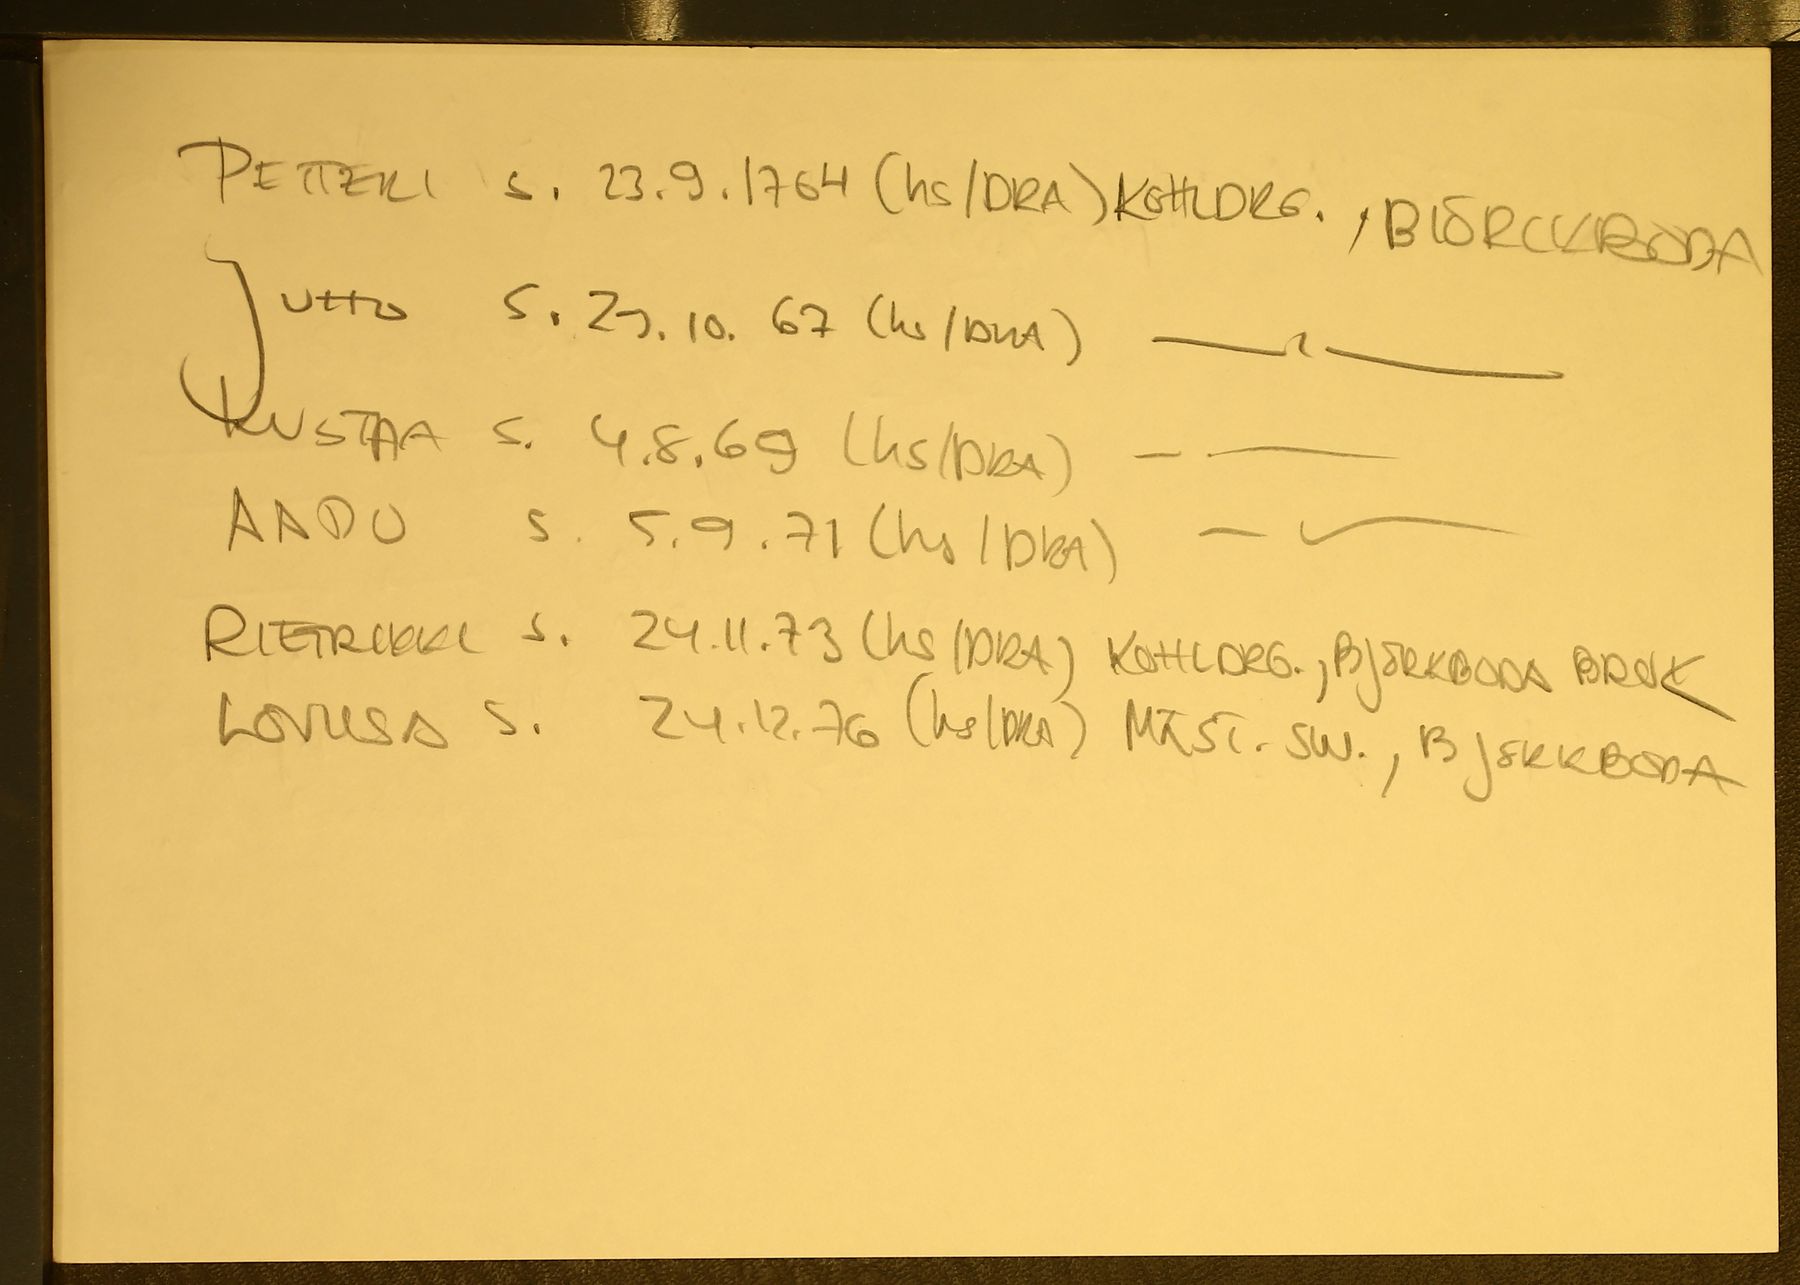 PETTERI s. 23.9.1764 (hs/DRA) KOHLDRG., BIÖRCKBODA
JUHO s. 29.10.67 (hs/DRA) — " —
KUSTAA s. 4.8.69 (hs/DRA) — " —
AADU s. 5.9.71 (hs/DRA) — " —
RIETRIKKI s. 24.11.73 (hs/DRA) KOHLDRG., BJÖRKBODA BRUK
LOVIISA s. 24.12.76 (hs/DRA) MÄST. SW., BJÖRKBODA